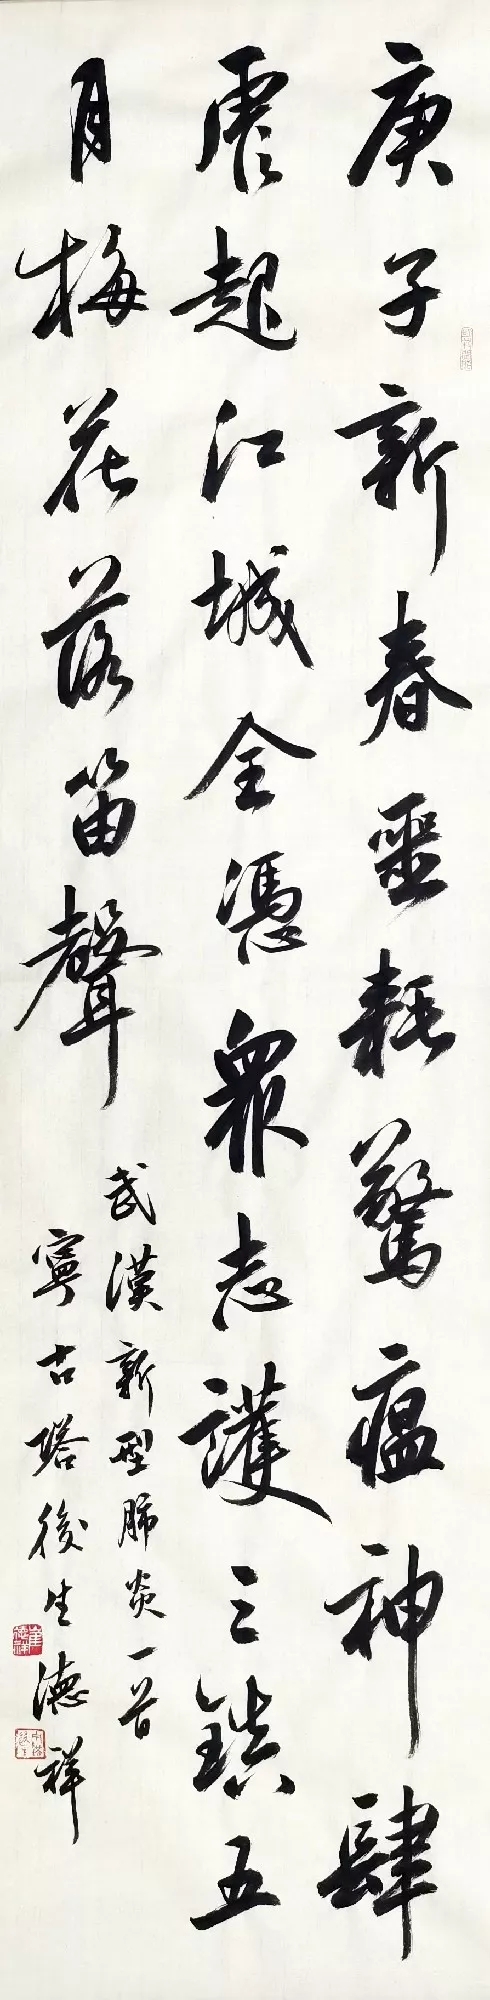 庚子新春噩耗驚瘟神肆
虐起江城全憑眾志護三鎮五
月梅花落笛聲
武漢新型肺炎一首
寧古塔後生德祥
崔德祥